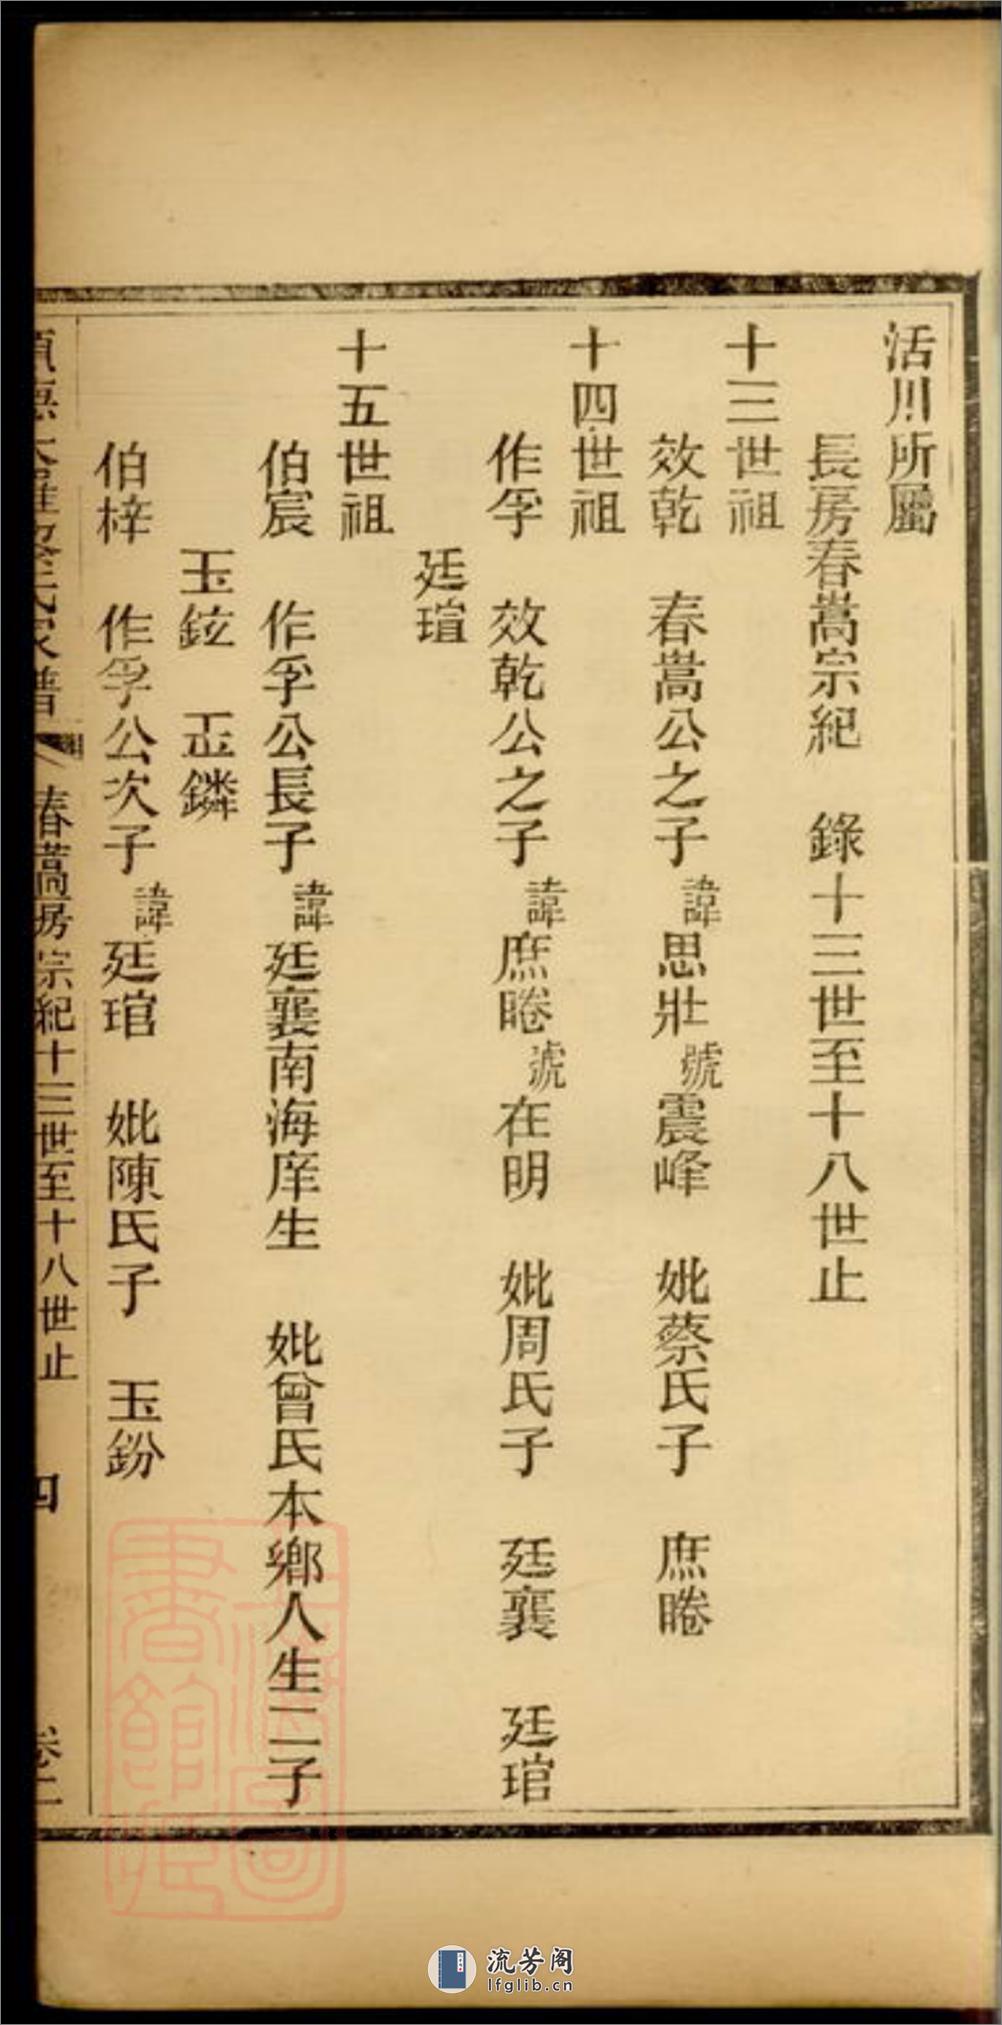 活川所屬
長房春嵩宗紀　錄十三世至十八世止
十三世祖
效乾　春嵩公之子諱思壯號震峰　妣蔡氏子　庶睠
十四世祖
作孚　效乾公之子諱庶睠號在明　妣周氏子　廷襄　廷琯
廷瑄
十五世祖
伯宸　作孚公長子諱廷襄南海庠生　妣曾氏本鄉人生二子
玉鉉　玉鏻
伯梓　作孚公次子諱廷琯　妣陳氏子　玉鈖
氏家譜　春嵩房宗紀十三世至十八世止　四　卷二
流芳阁
lfglib.cn